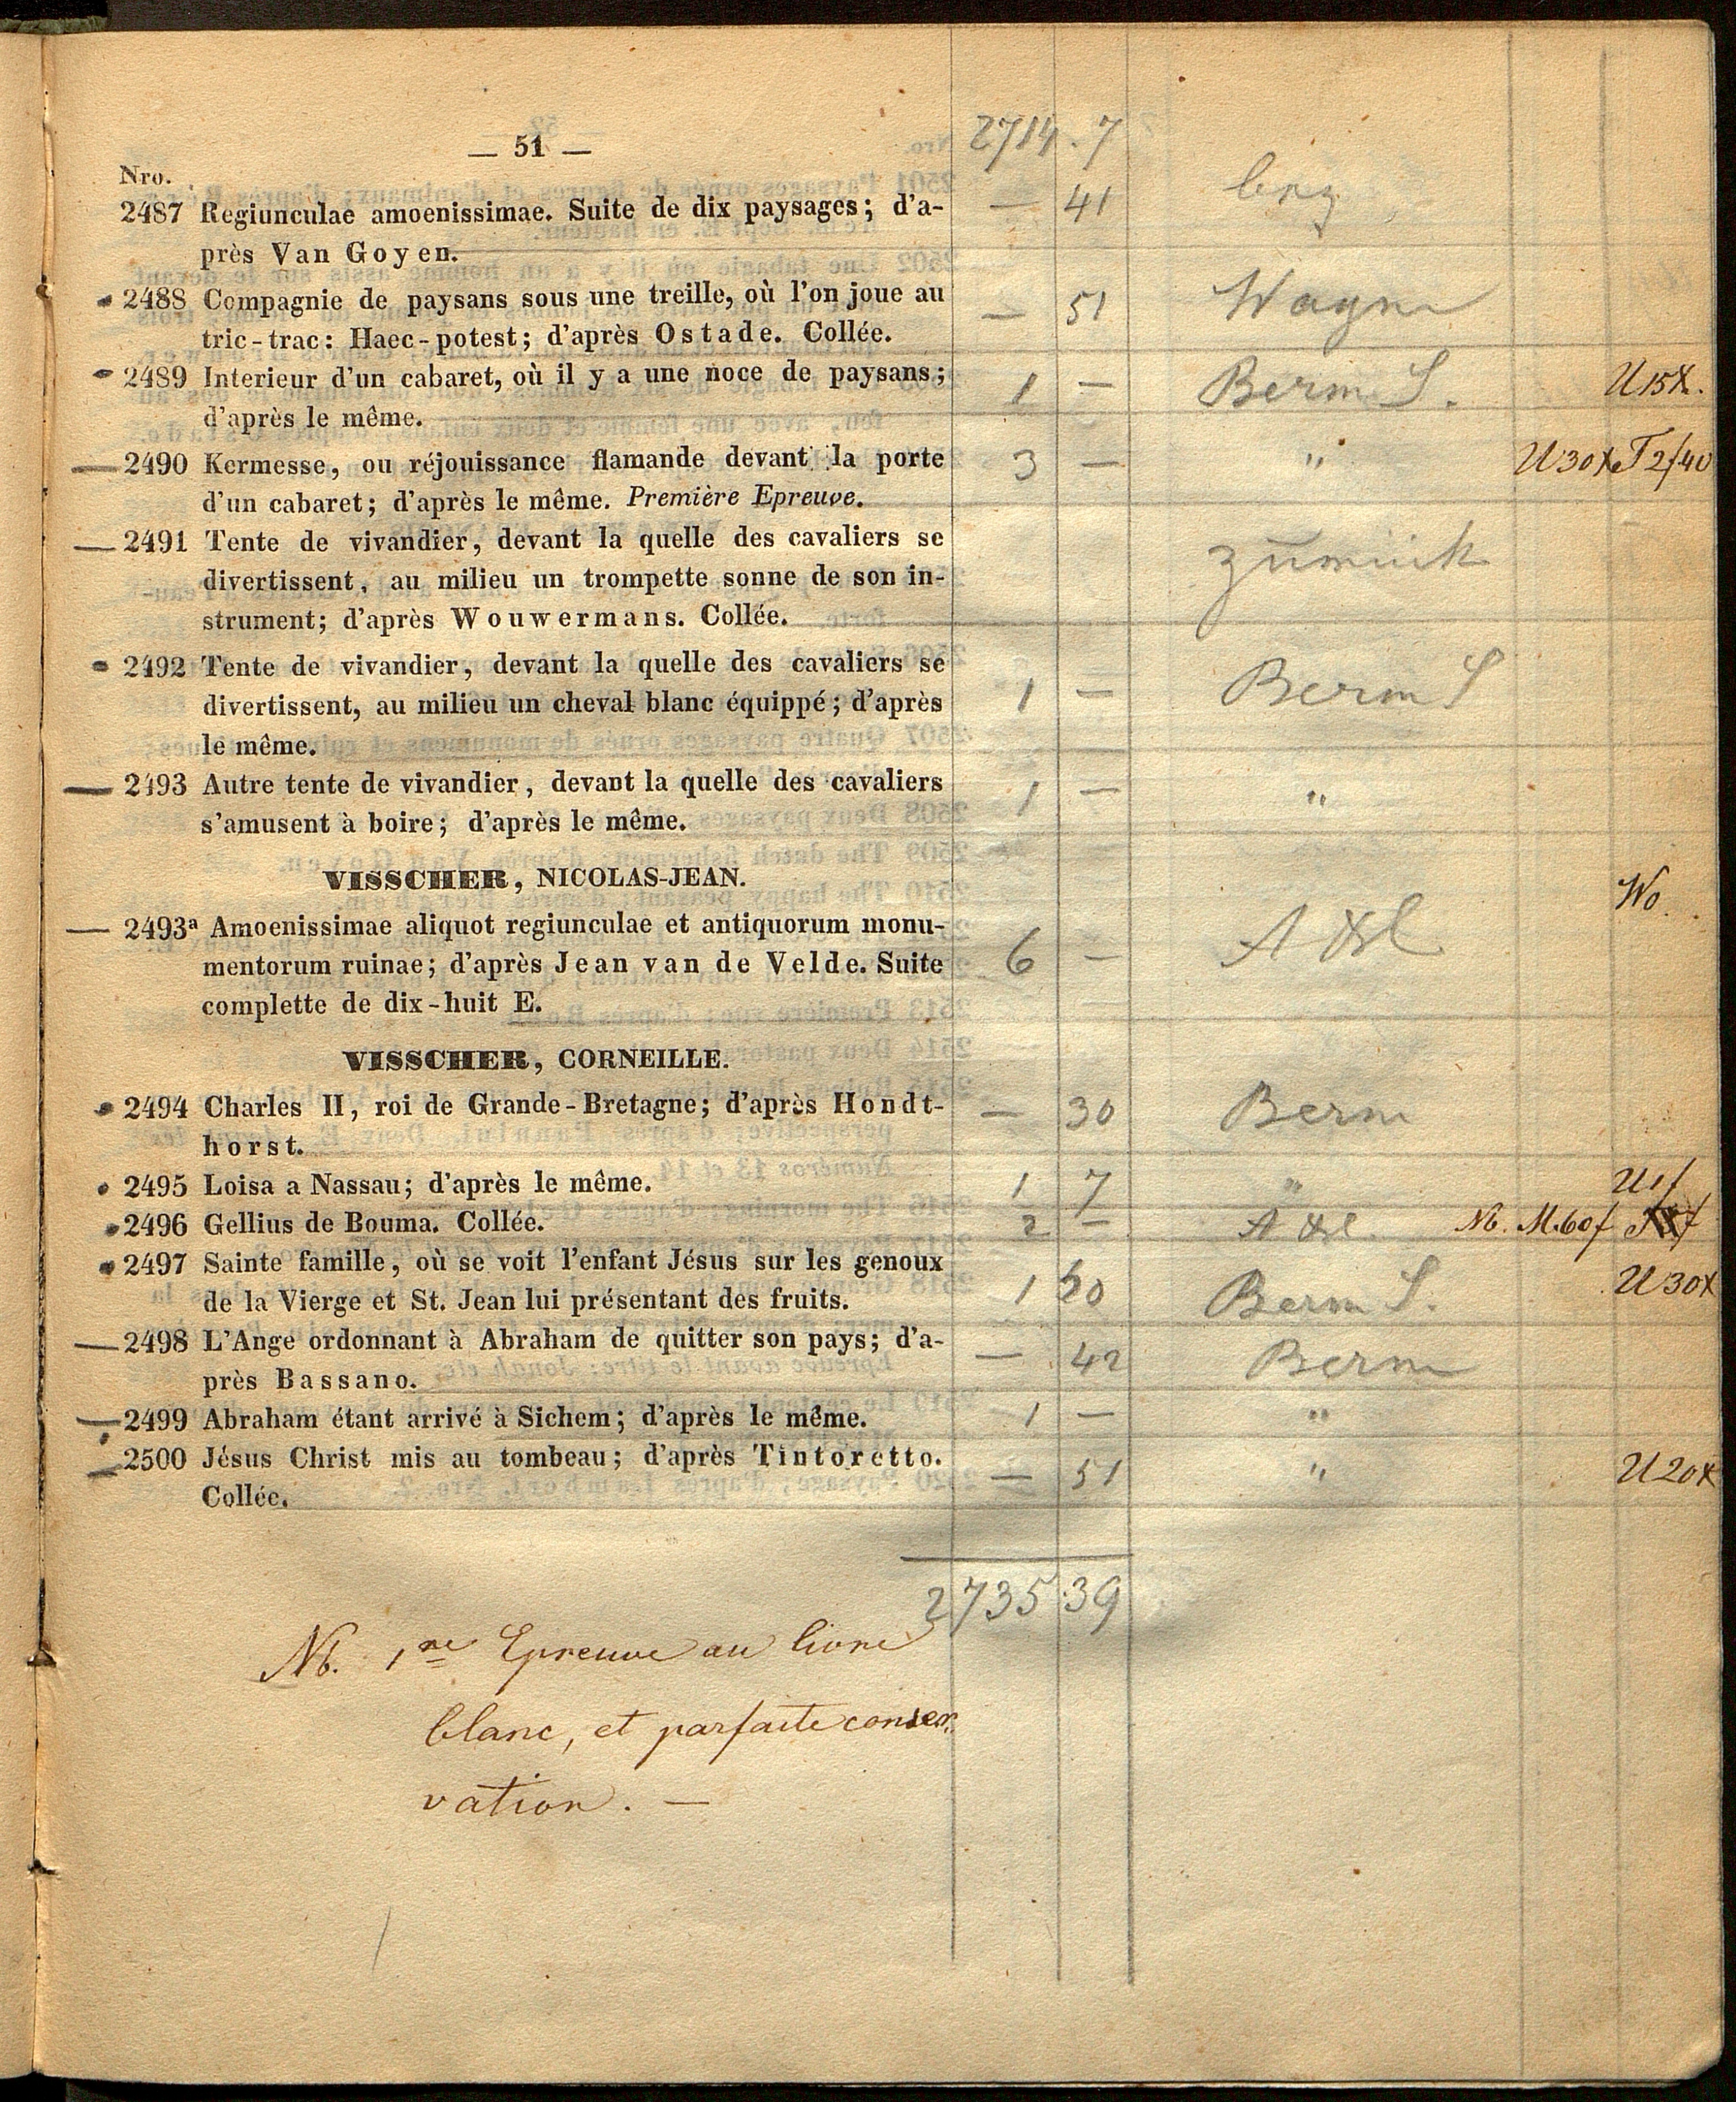 — 51 —
2714 . 7
Nro.
2487 Regiunculae amoenissimae. Suite de dix paysages; d'a- — 41
près Van Goyen.
2488 Compagnie de paysans sous une treille, où l'on joue au — 51
tric-trac: Haec-potest; d'après Ostade. Collée.
2489 Interieur d'un cabaret, où il y a une noce de paysans; 1 — Berm S. U 15 x.
d'après le même.
— 2490 Kermesse, ou réjouissance flamande devant la porte 3 — " U 30 x T 2f 40
d'un cabaret; d'après le même. Première Epreuve.
— 2491 Tente de vivandier, devant la quelle des cavaliers se
divertissent, au milieu un trompette sonne de son in-
strument; d'après Wouwermans. Collée.
2492 Tente de vivandier, devant la quelle des cavaliers se 1 — Berm S
divertissent, au milieu un cheval blanc équippé; d'après
le même.
— 2493 Autre tente de vivandier, devant la quelle des cavaliers 1 — "
s'amusent à boire; d'après le même.
VISSCHER, NICOLAS-JEAN. Wo.
— 2493a Amoenissimae aliquot regiunculae et antiquorum monu-
mentorum ruinae; d'après Jean van de Velde. Suite 6 —
complette de dix-huit E.
VISSCHER, CORNEILLE.
2494 Charles II, roi de Grande-Bretagne; d'après Hondt- — 30 Berm
horst.
2495 Loisa a Nassau; d'après le même. 1 7 " U 1f
2496 Gellius de Bouma. Collée. 2 — Nb. M. 60f
2497 Sainte famille, où se voit l'enfant Jésus sur les genoux U 30 x
de la Vierge et St. Jean lui présentant des fruits. 1 Berm S.
— 2498 L'Ange ordonnant à Abraham de quitter son pays; d'a- — 42 Berm
près Bassano.
— 2499 Abraham étant arrivé à Sichem; d'après le même. 1 — "
— 2500 Jésus Christ mis au tombeau; d'après Tintoretto. — 51 " U 20 x
Collée.
2735 39
Nb. 1re Epreuve au livre
blanc, et parfaite conser.
vation. —